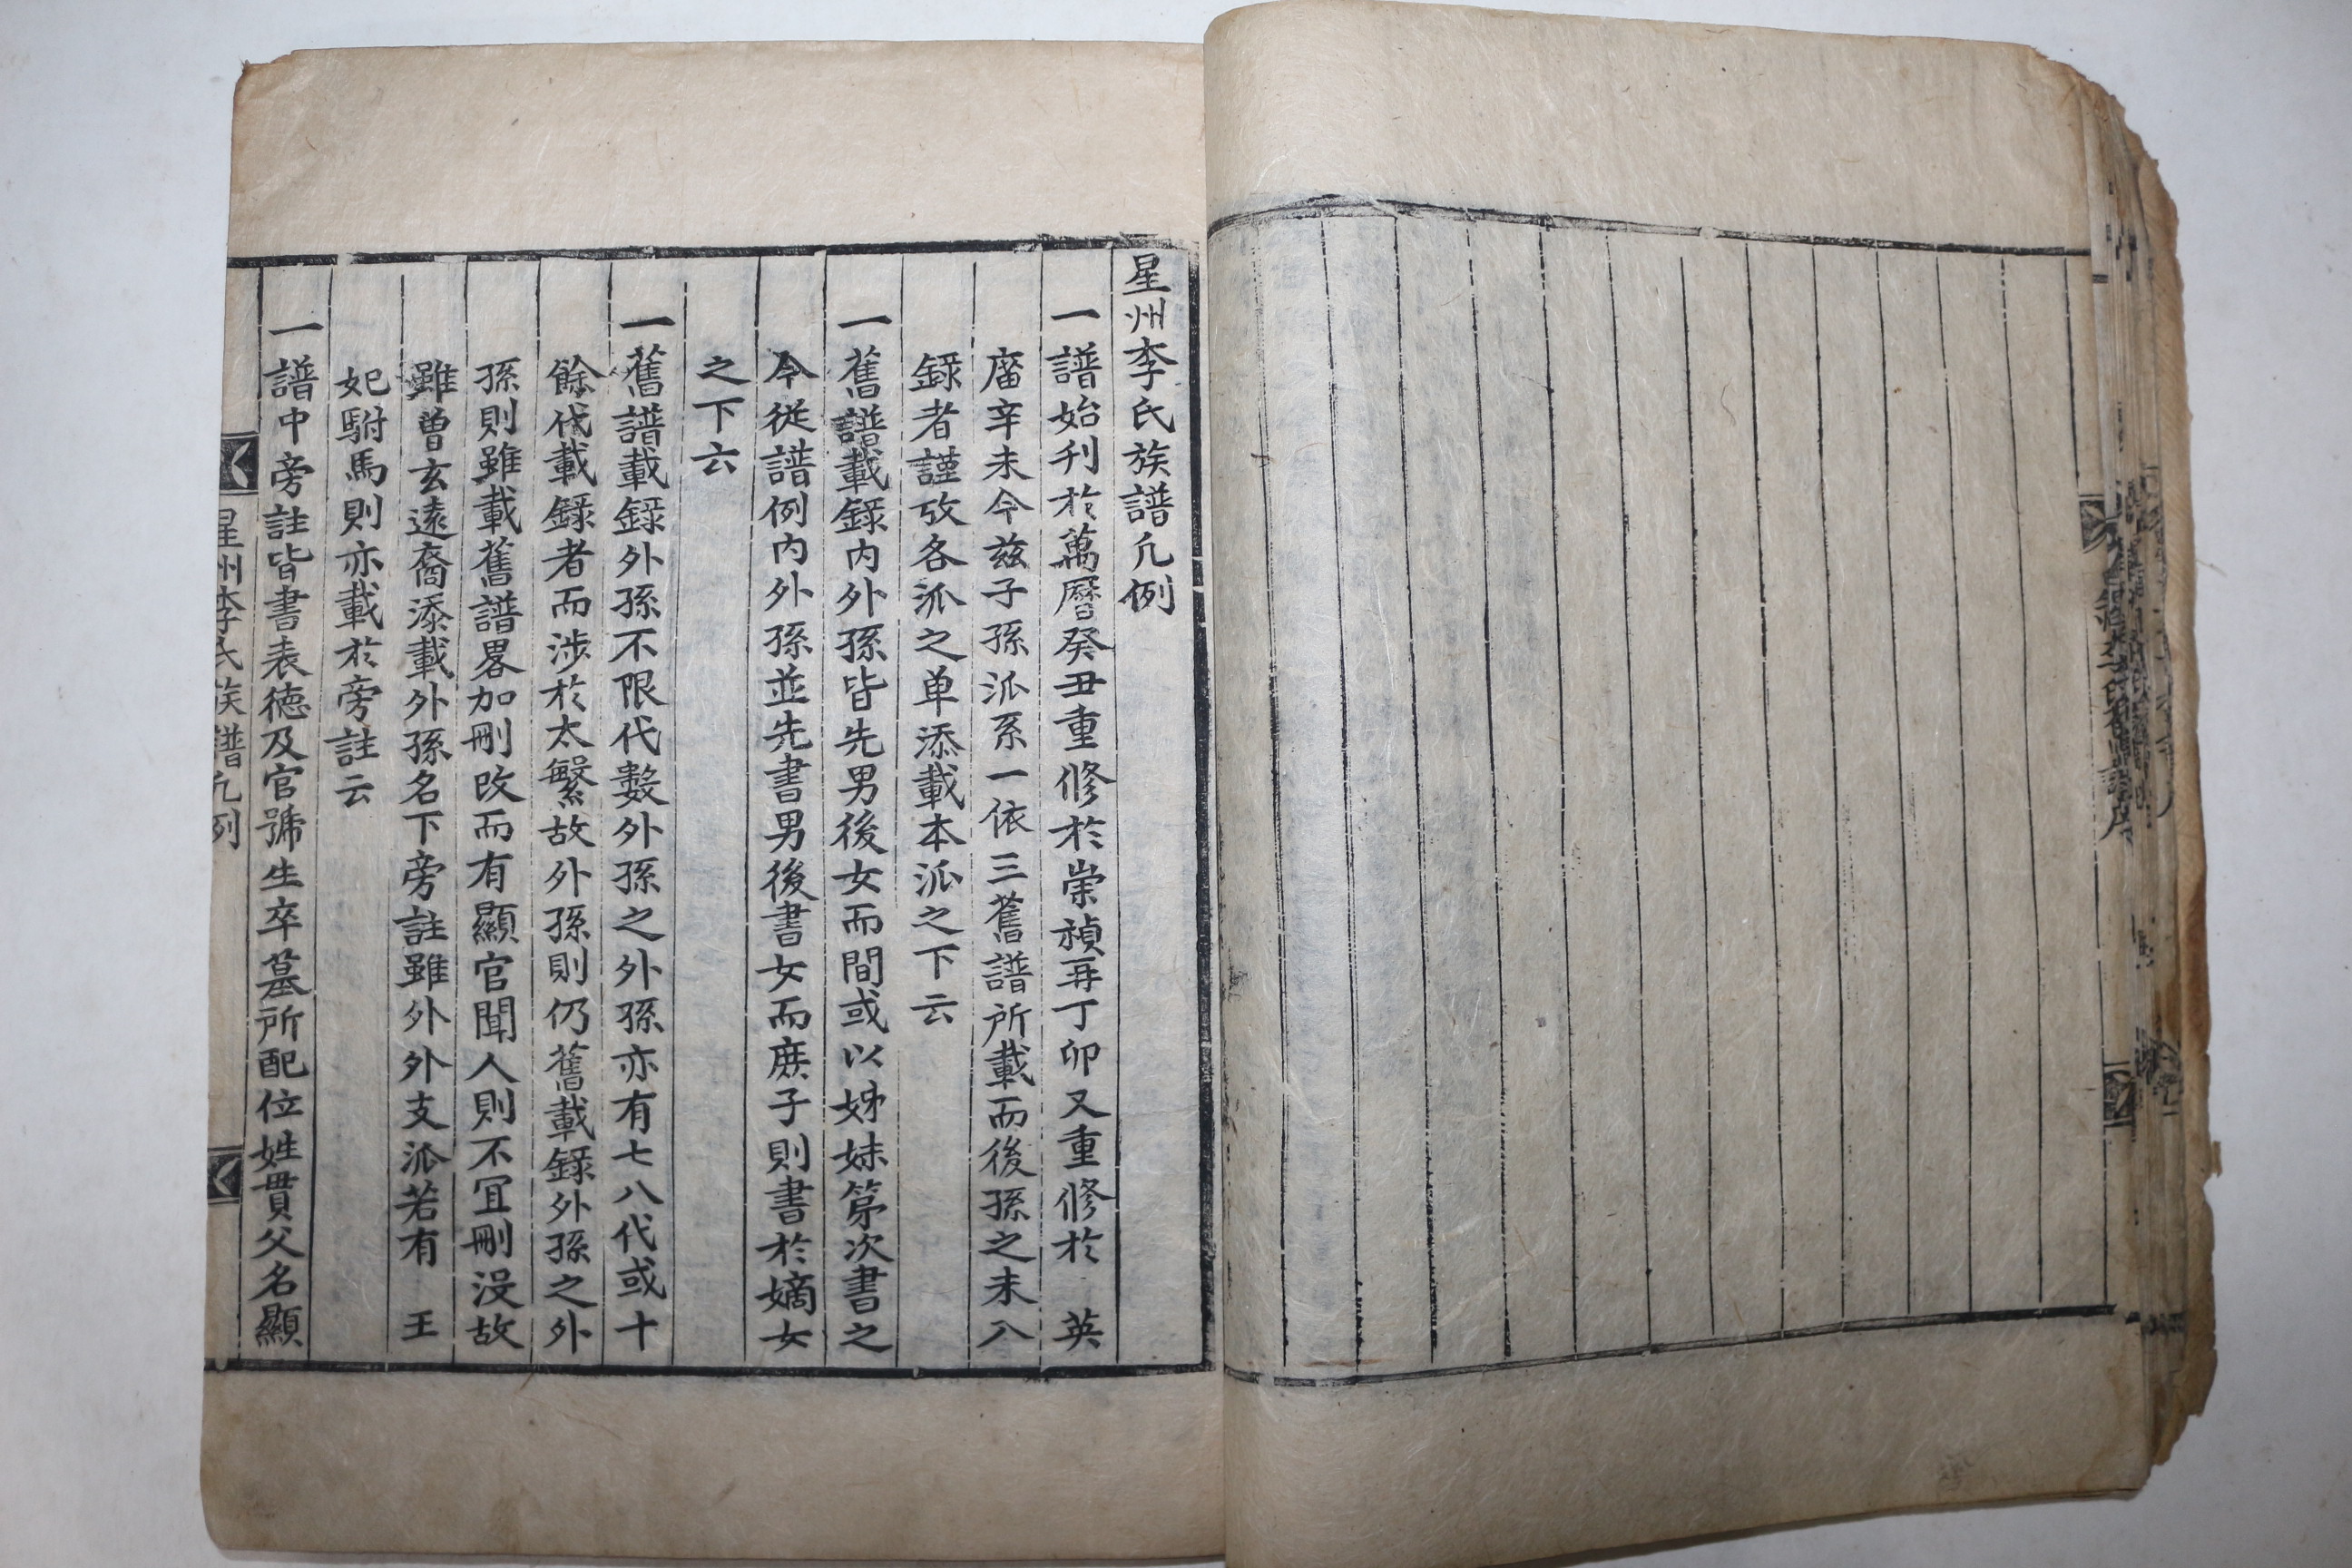 星州李氏族譜凡例
一譜始刋於萬曆癸丑重修於崇禎再丁卯又重修於 英
廟辛未今玆子孫派系一依三舊譜所載而後孫之未入
錄者謹攷各派之单添載本派之下云
一舊譜載錄內外孫皆先男後女而間或以姊妹第次書之
今從譜例內外孫並先書男後書女而庶子則書於嫡女
之下云
一舊譜載錄外孫不限代數外孫之外孫亦有七八代或十
餘代載錄者而涉於太繁故外孫則仍舊載錄外孫之外
孫則雖載舊譜畧加刪改而有顯官聞人則不冝刪沒故
雖曾玄遠裔添載外孫名下旁註雖外外支派若有 王
妃駙馬則亦載於旁註云
一譜中旁註皆書表德及官號生卒墓所配位姓貫父名顯
星州李氏族譜凡例